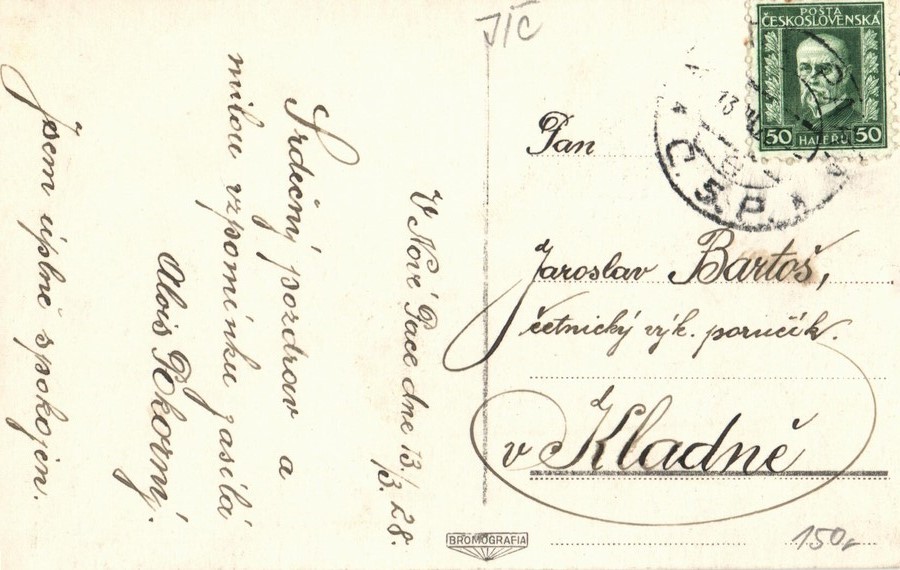 V Nové Pace dne 13./3.28.
Srdečný pozdrav a
milou vzpomínku zasílá
Alois Pokorný.
Jsem úplně spokojen.
JIČ
POŠTA
ČESKOSLOVENSKÁ
50 HALÉŘŮ 50
13
Č.S.P.
Pan
Jaroslav Bartoš,
četnický výk. poručík.
v Kladně
BROMOGRAFIA
150,-